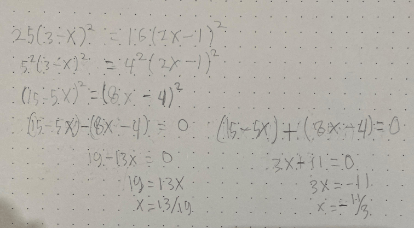 25(3-x)² = 16(2x-1)²
5²(3-x)² = 4²(2x-1)²
(15-5x)² = (8x-4)²
(15-5x)-(8x-4) = 0
19-13x = 0
19=13x
x=13/19
(15-5x)+(8x-4)=0
3x+11=0
3x=-11
x=-11/3